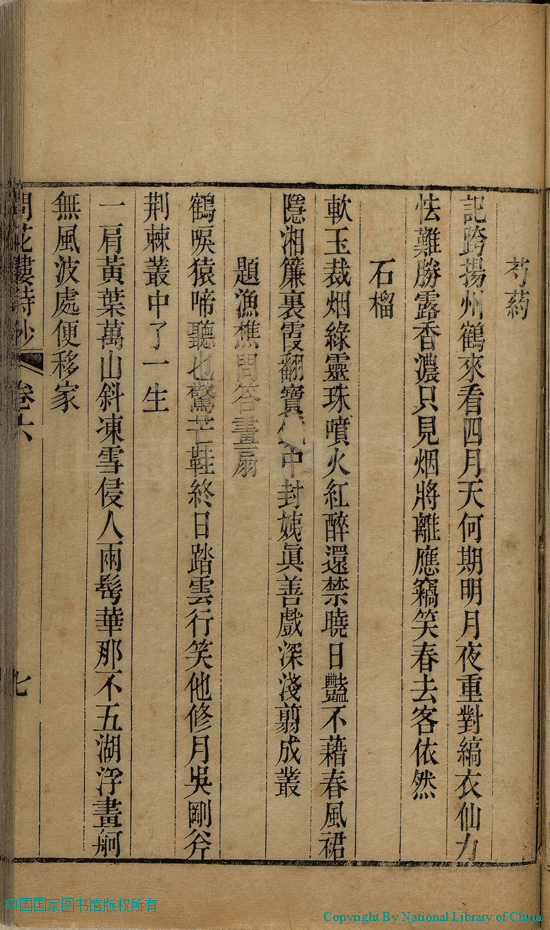 芍葯
記跨揚州鶴來看四月天何期明月夜重對縞衣仙力
怯難勝露香濃只見烟將離應竊笑春去客依然
石榴
軟玉裁烟綠靈珠噴火紅醉還禁曉日豔不藉春風裙
隱湘簾裏霞翻寶中封姨眞善戲深淺翦成叢
題漁樵問答畫扇
鶴唳猿啼聽也驚芒鞋終日踏雲行笑他修月吳剛斧
荆棘叢中了一生
一肩黃葉萬山斜凍雪侵人兩鬓華那不五湖浮畫舸
無風波處便移家
問花樓詩鈔 卷六 七
中国国家图书馆版权所有
Copyright By National Library of China